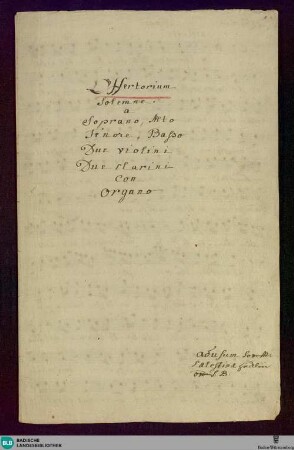 Offertorium
Solemne.
a
Soprano, Alto
Tenore, Basso
Due Violini
Due Clarini
Con
Organo
Ad usum
S. B.
BLB BADISCHE
LANDESBIBLIOTHEK
Baden-Württemberg